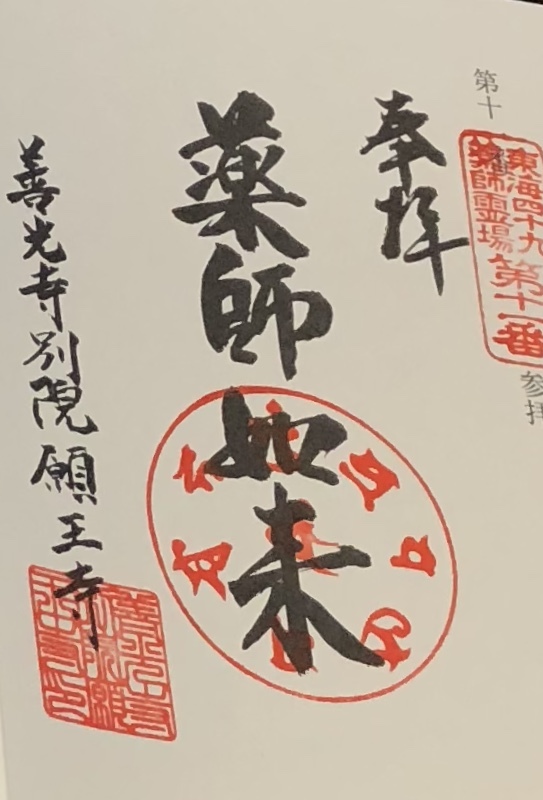 第十
東海四十九
薬師霊場
第十一番
参拝
奉拝
薬師如来
善光寺別院願王寺